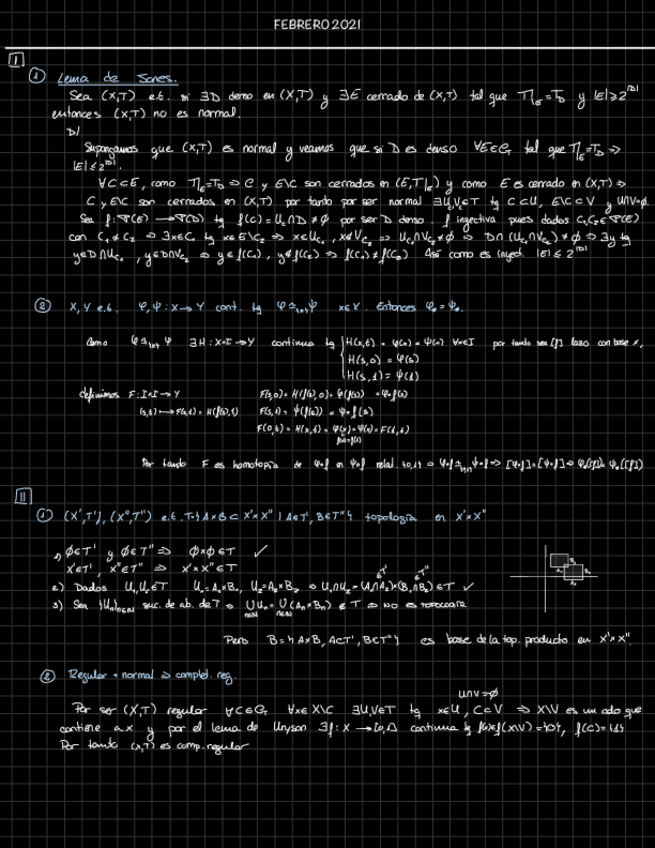 FEBRERO 2021
I
① Lema de Jones.
Sea (X,T) e.t. si ∃D denso en (X,T) y ∃E cerrado de (X,T) tal que T|_E = T_D y |E| ≥ 2^|D|
entonces (X,T) no es normal.
D/
Supongamos que (X,T) es normal y veamos que si D es denso ∀E∈C_T tal que T|_E = T_D ⇒
|E| ≤ 2^|D|.
∀C⊂E, como T|_E = T_D ⇒ C y E\C son cerrados en (E,T|_E) y como E es cerrado en (X,T) ⇒
C y E\C son cerrados en (X,T) por tanto por ser normal ∃U,V∈T tq C⊂U, E\C⊂V y U∩V=∅.
Sea f: P(E) → P(D) tq f(C) = U_C∩D ≠ ∅ por ser D denso. f inyectiva pues dados C₁,C₂∈P(E)
con C₁≠C₂ ⇒ ∃x∈C₁ tq x∈E\C₂ ⇒ x∈U_C₁, x∈V_C₂ ⇒ U_C₁∩V_C₂≠∅ ⇒ D∩(U_C₁∩V_C₂)≠∅ ⇒ ∃y tq
y∈D∩U_C₁, y∈D∩V_C₂ ⇒ y∈f(C₁), y∉f(C₂) ⇒ f(C₁)≠f(C₂) Así como es inyect. |E| ≤ 2^|D|
② X,Y e.t. φ,ψ: X→Y cont. tq φ≃_{x} ψ x∈X. Entonces φ* = ψ*.
Como φ≃_{x} ψ ∃H: X×I→Y continua tq H(x,t) = φ(x) = ψ(x) ∀t∈I por tanto sea [f] lazo con base x,
H(s,0) = φ(s)
H(s,1) = ψ(s)
definimos F: I×I→Y F(s,0) = H(f(s),0) = φ(f(s)) = φ∘f(s)
(s,t)↦F(s,t) = H(f(s),t) F(s,1) = ψ(f(s)) = ψ∘f(s)
F(0,t) = H(x,t) = φ(x) = ψ(x) = F(1,t)
Por tanto F es homotopía de φ∘f en ψ∘f relat. {0,1} ⇒ φ∘f ≃_{0,1} ψ∘f ⇒ [φ∘f] = [ψ∘f] ⇒ φ*([f]) = ψ*([f])
II
① (X',T'), (X'',T'') e.t. T={A×B⊂X'×X'' | A∈T', B∈T''} topología en X'×X''
1) ∅∈T' y ∅∈T'' ⇒ ∅×∅∈T ✓
X'∈T', X''∈T'' ⇒ X'×X''∈T
2) Dados U₁,U₂∈T U₁=A₁×B₁, U₂=A₂×B₂ ⇒ U₁∩U₂ = (A₁∩A₂)×(B₁∩B₂) ∈T ✓
3) Sea {Uₙ}n∈N suc. de ab. de T ⇒ ∪Uₙ = ∪(Aₙ×Bₙ) ∉ T ⇒ NO ES TOPOLOGÍA
Pero B={A×B, A∈T', B∈T''} es base de la top. producto en X'×X''.
② Regular + normal ⇒ complet. reg.
U∩V=∅
Por ser (X,T) regular ∀C∈C_T ∀x∈X\C ∃U,V∈T tq x∈U, C⊂V ⇒ X\V es un cdo que
contiene a x y por el lema de Uryson ∃f: X→[0,1] continua tq f(x)∈f(X\V)={0}, f(C)={1}
Por tanto (X,T) es comp. regular